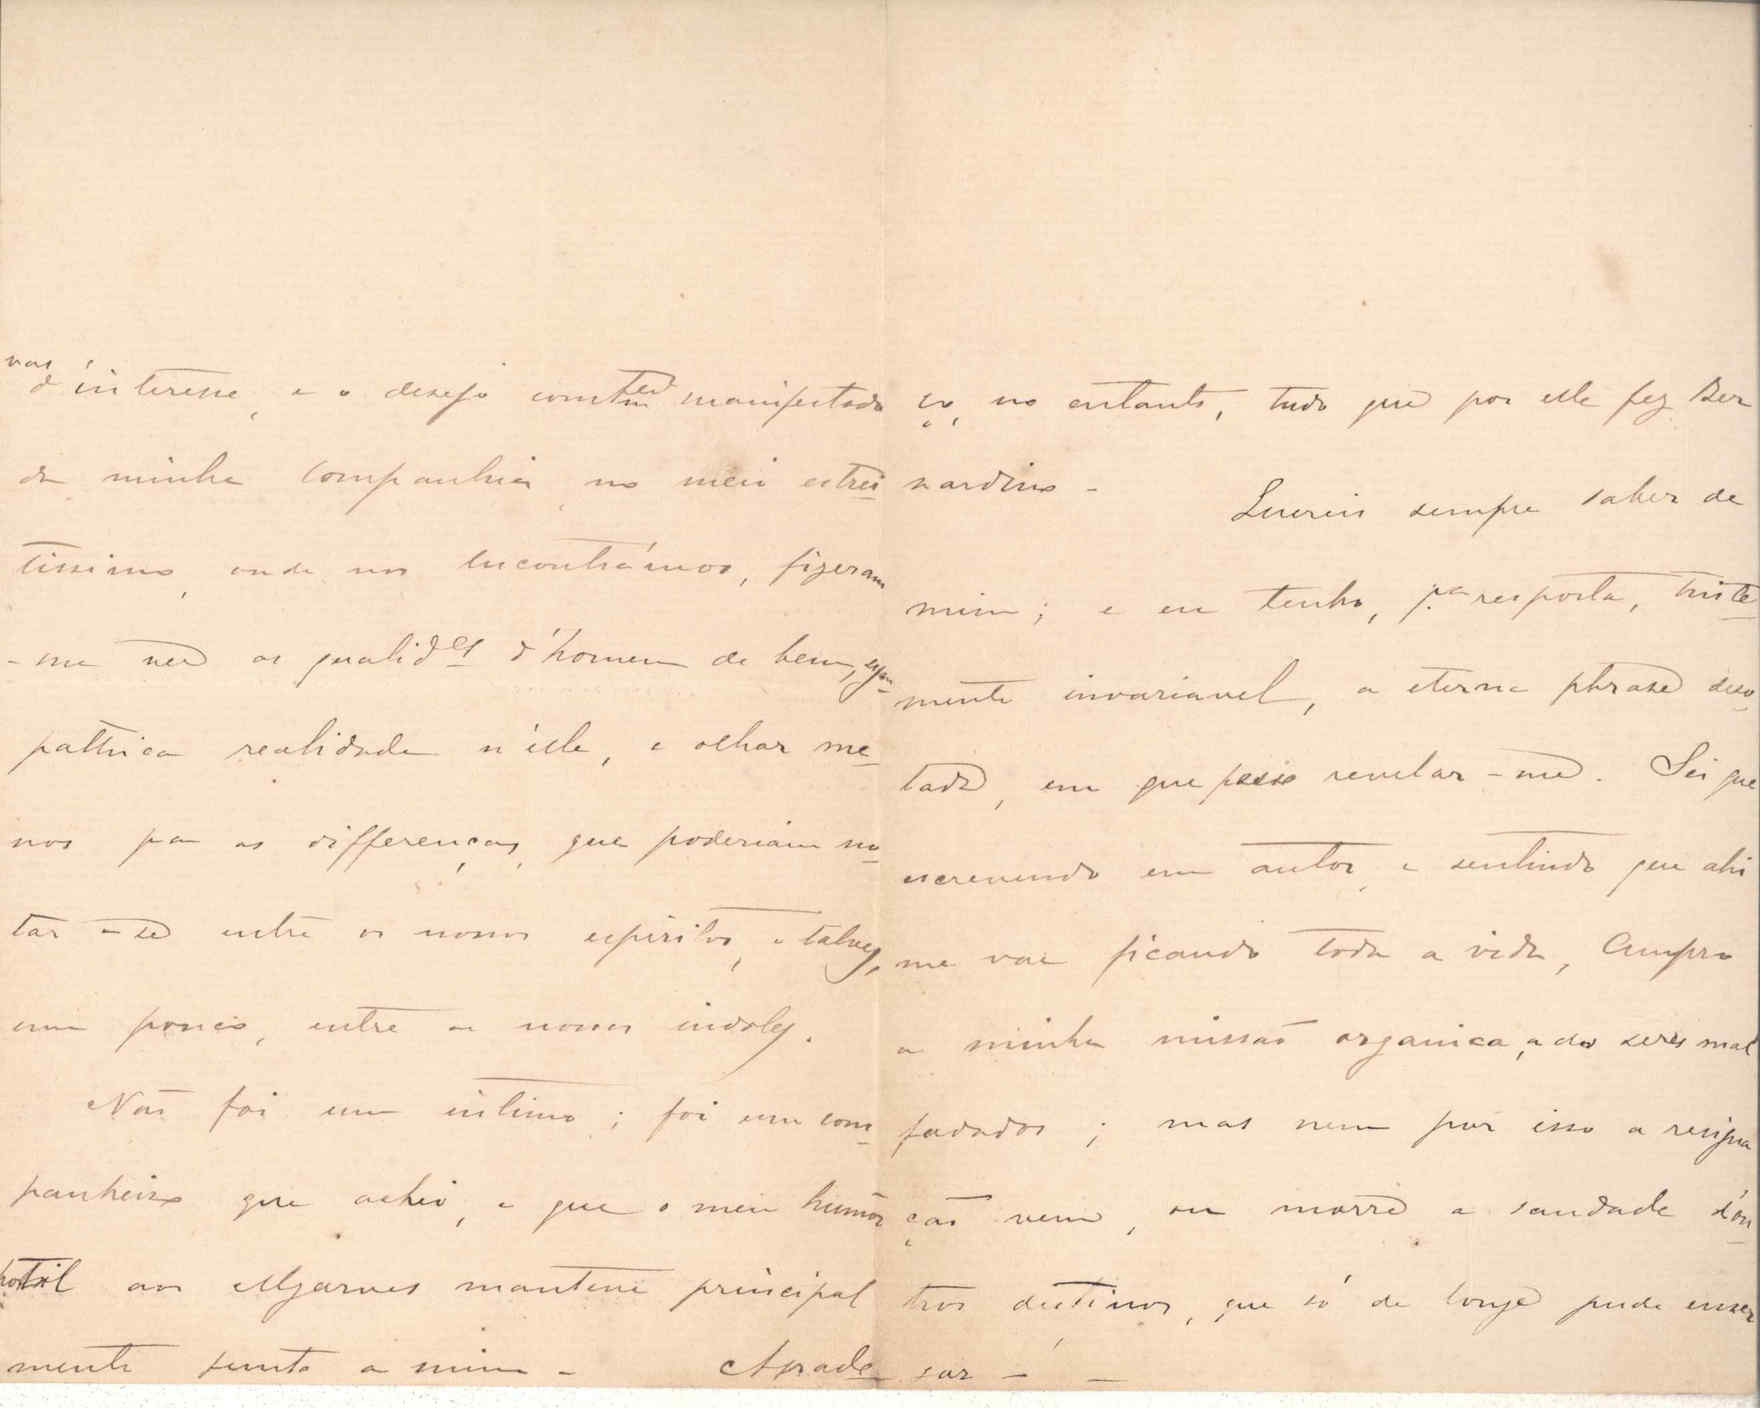 vas
d'interesse, e o desejo const.em manifestado
da minha companhia no meio estrei
tissimo, onde nos encontrámos, fizeram
-me ver as qualid.es d'homem de bem, sym
pathica realidade n'elle, e olhar me
nos pa as differenças, que poderiam no
tar-se entre os nossos espiritos, e talvez,
um pouco, entre as nossas indoles.
Não foi um intimo; foi um com
panheiro que achei, e que o meu humor
hostil aos Algarves manteve principal
mente junto a mim - Agrade
ço, no entanto, tudo que por elle fez Ber
nardino -
Quereis sempre saber de
mim; e eu tenho, p.a resposta, triste
mente invariavel, a eterna phrase deso
lada, em que posso revelar-me. Sei que
escrevendo em autos, e sentindo que ahi
me vae ficando toda a vida, cumpro
a minha missão organica, a dos seres mal
fadados; mas nem por isso a resigna
ção vem, ou morre a saudade d'ou
tros destinos, que só de longe pude enxer
gar - -